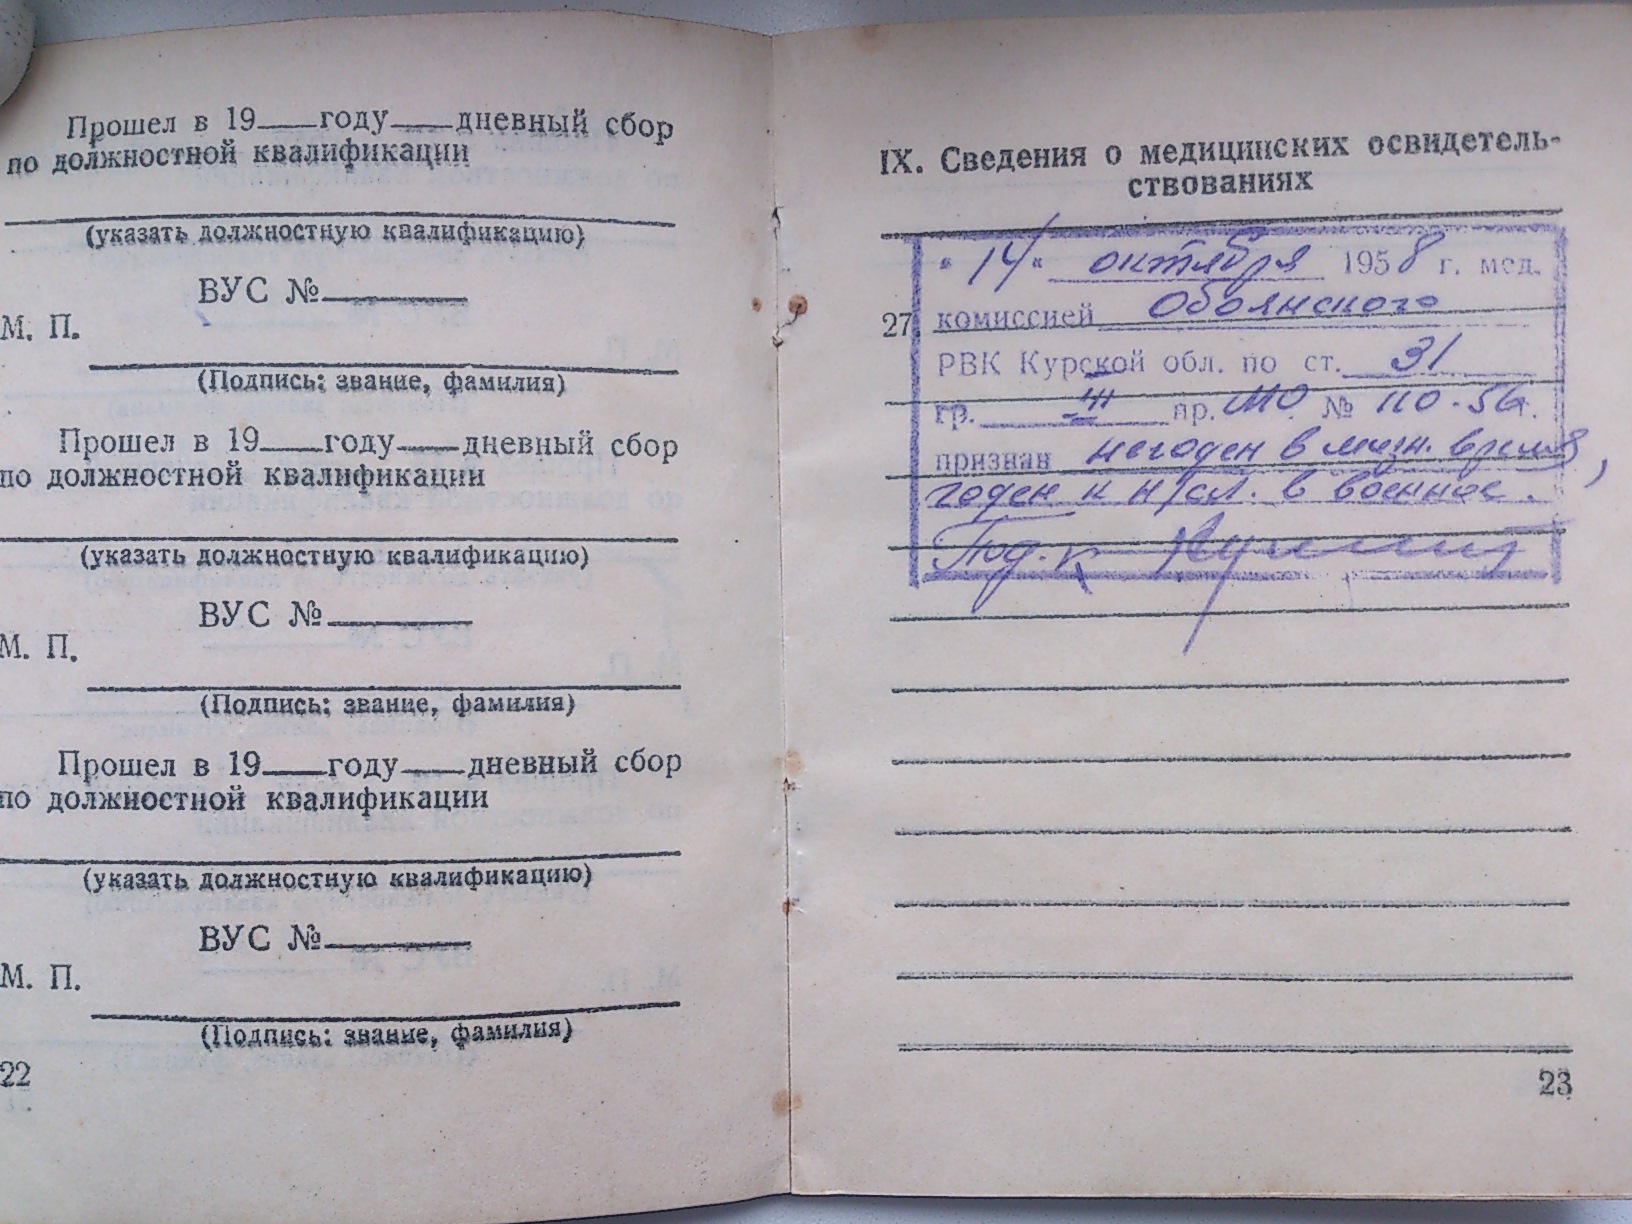 Прошел в 19 году дневный сбор
по должностной квалификации
(указать должностную квалификацию)
ВУС №
М. П.
(Подпись: звание, фамилия)
Прошел в 19 году дневный сбор
по должностной квалификации
(указать должностную квалификацию)
ВУС №
М. П.
(Подпись: звание, фамилия)
Прошел в 19 году дневный сбор
по должностной квалификации
(указать должностную квалификацию)
ВУС №
М. П.
(Подпись: звание, фамилия)
22
IX. Сведения о медицинских освидетель-
ствованиях
"14" октября 1958 г. мед.
27. комиссией Обоянского
РВК Курской обл. по ст. 31
гр. III пр. МО № 110-56г.
признан негоден в мирн. время,
годен к н/сл. в военное.
23